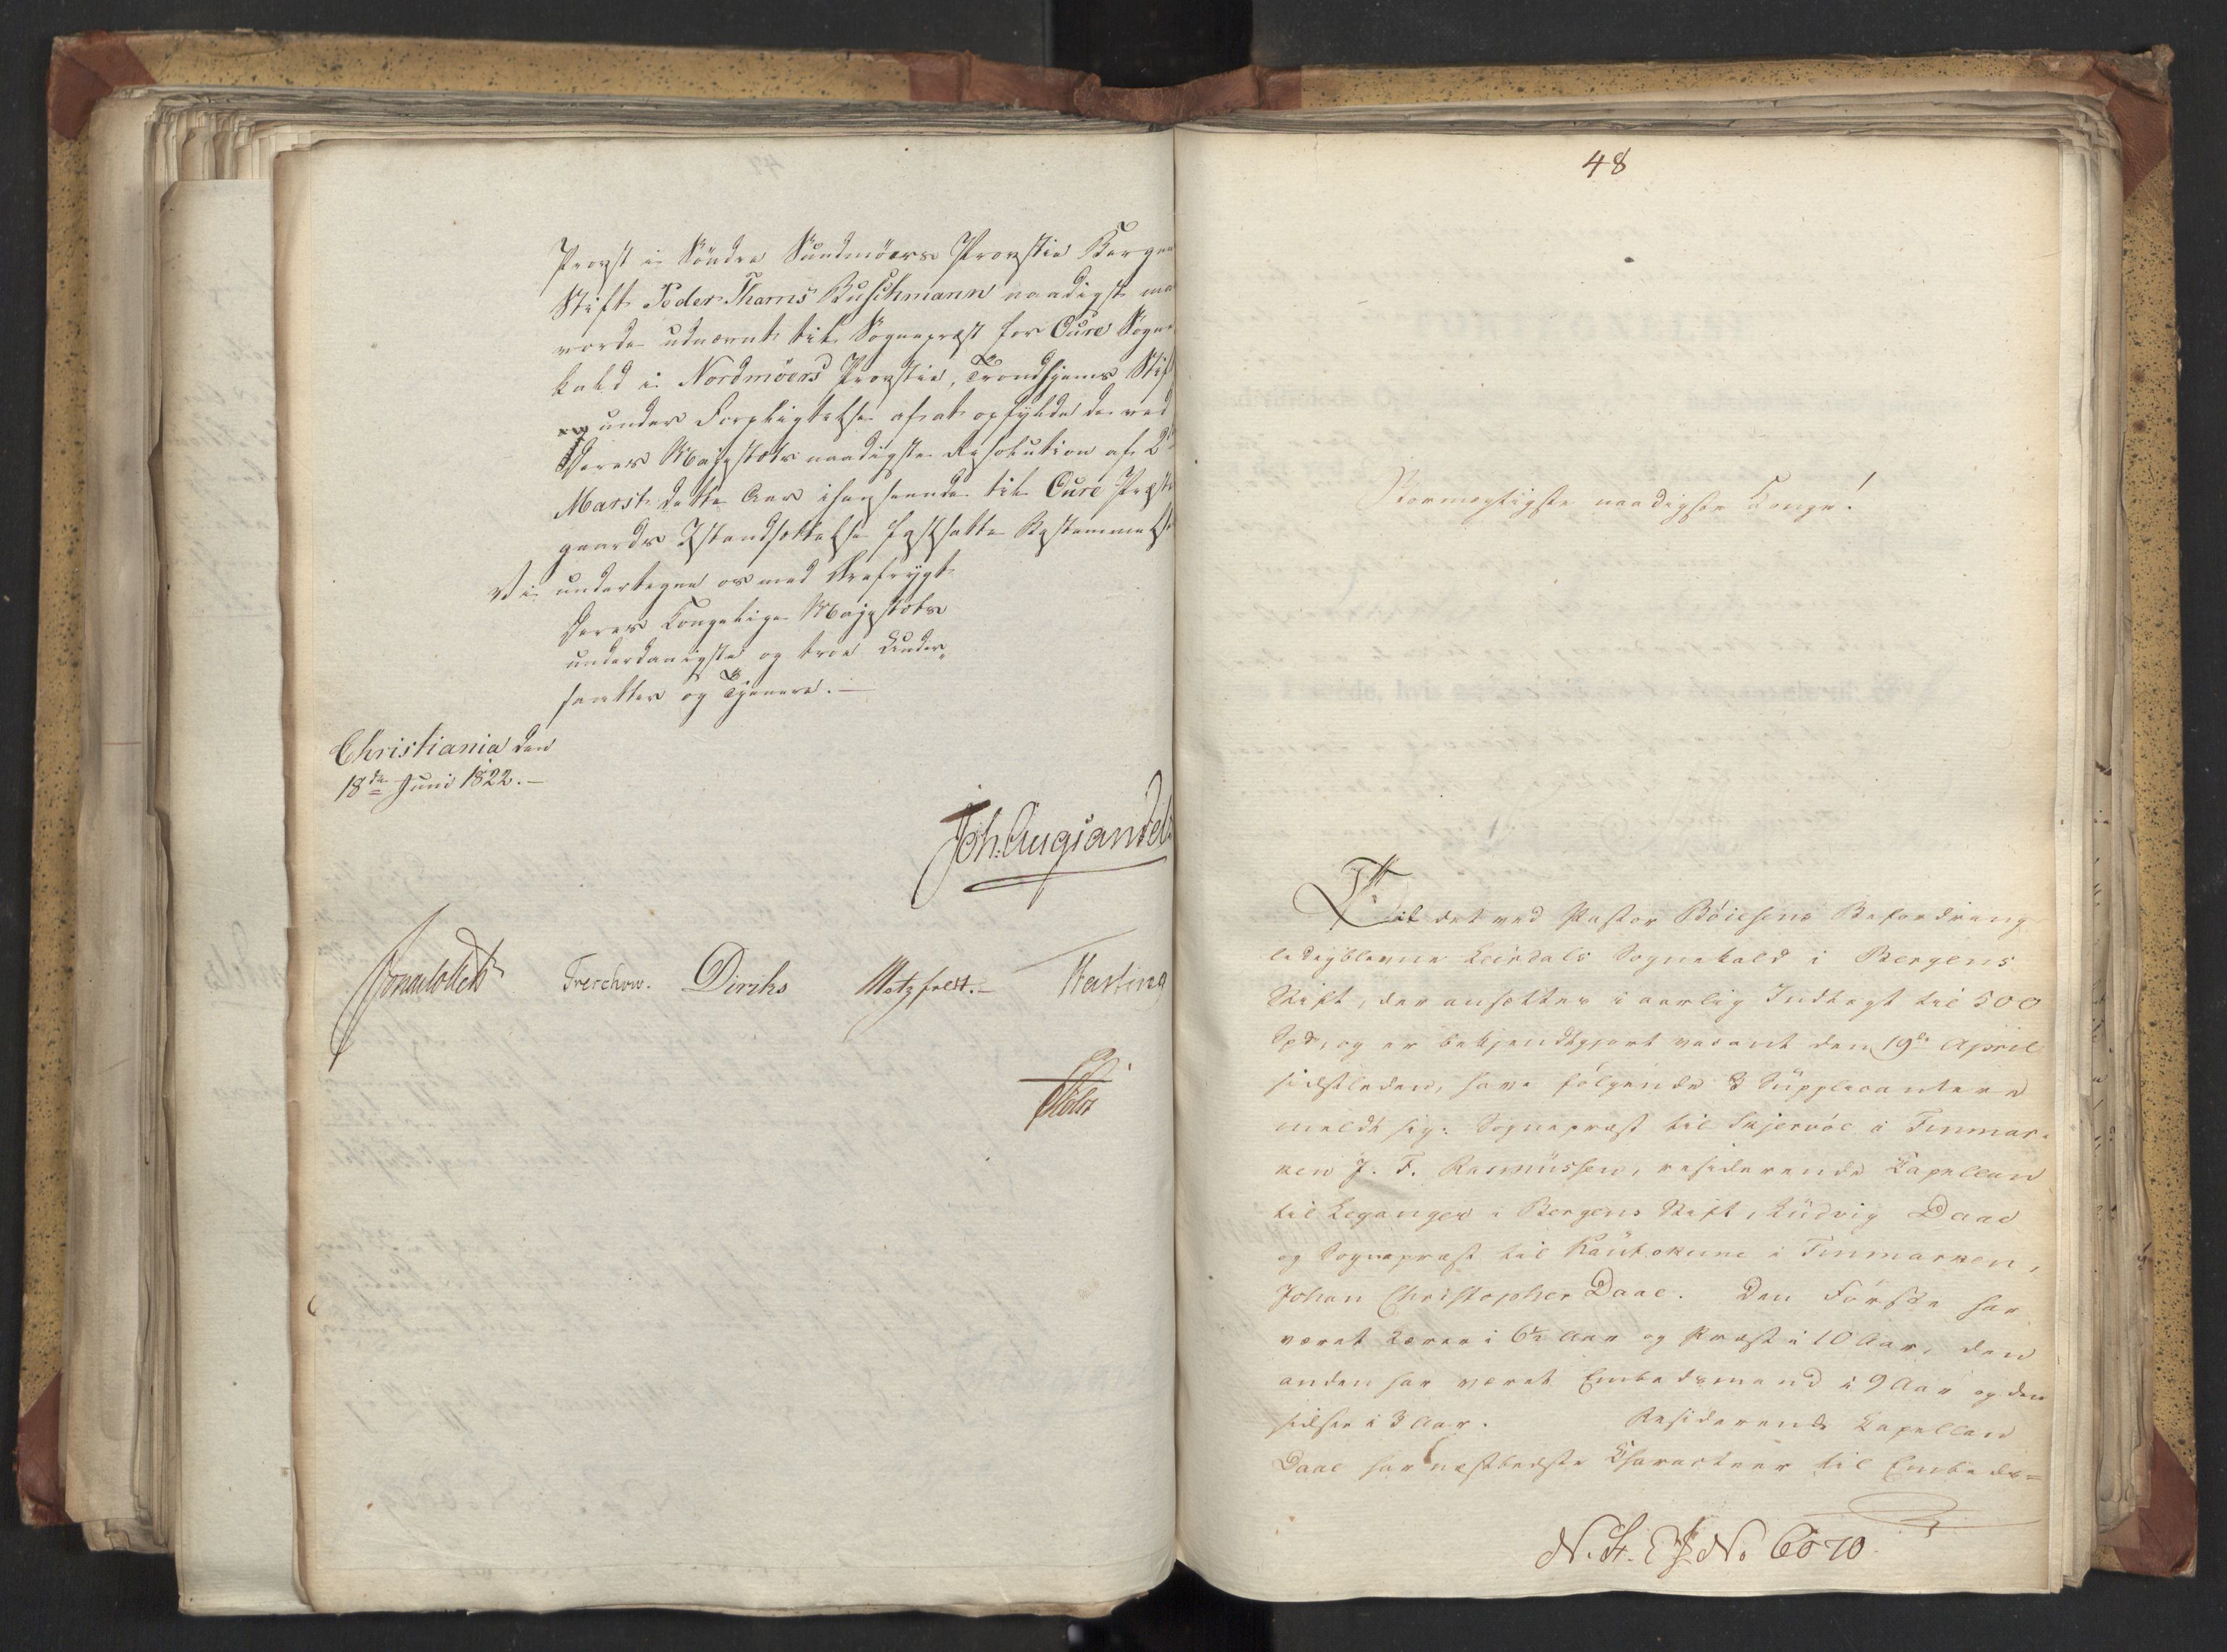 Provst i Söndre Sundmöers Provstie Bergens
Stift Peder Thams Buschmann naadigst maa
vorde udnævnt til Sognepræst for Oure Sogne
kald i Nordmöers Provstie, Trondhjems Stift
under Forpligtelse af at opfylde de ved
Deres Majestæts naadigste Resolution af 2
Marst dette Aar ihenseende til Oure Præste
gaards Istandsættelse fastsatte Bestemmelser
Vi undertegne os med Ærefrygt
Deres Kongelige Majestæts
underdanigste og troe Under
saatter og Tjenere.—
Christiania den
18de Juni 1822.—
Joh. Aug Sandels
Sommerhielm Treschow. Diriks Motzfeldt.— Fasting
Holst
48
Stormægtigste naadigste Konge!
Til det ved Pastor Böiesens Befordring
ledigblevne Leirdals Sognekald i Bergens
Stift, der ansættes i aarlig Indtægt til 500
Spd, og er bekjendtgjort vacant den 19de April
sidstleden, have følgende 3 Supplicantere
meldt sig: Sognepræst til Skjervöe i Finmar-
ken J. F. Rasmussen, residerende Kapellan
til Leganger i Bergens Stift, Ludvig Daae
og Sognepræst til Kautokeino i Finmarken,
Johan Christopher Daae. Den Første har
været Lærer i 6½ Aar og Præst i 10 Aar, den
anden har været Embedsmand i 9 Aar og den
sidste i 3 Aar. Residerende Kapellan
Daae har næstbedste Charakteer til Embeds=
N. St. E J. No 6070.